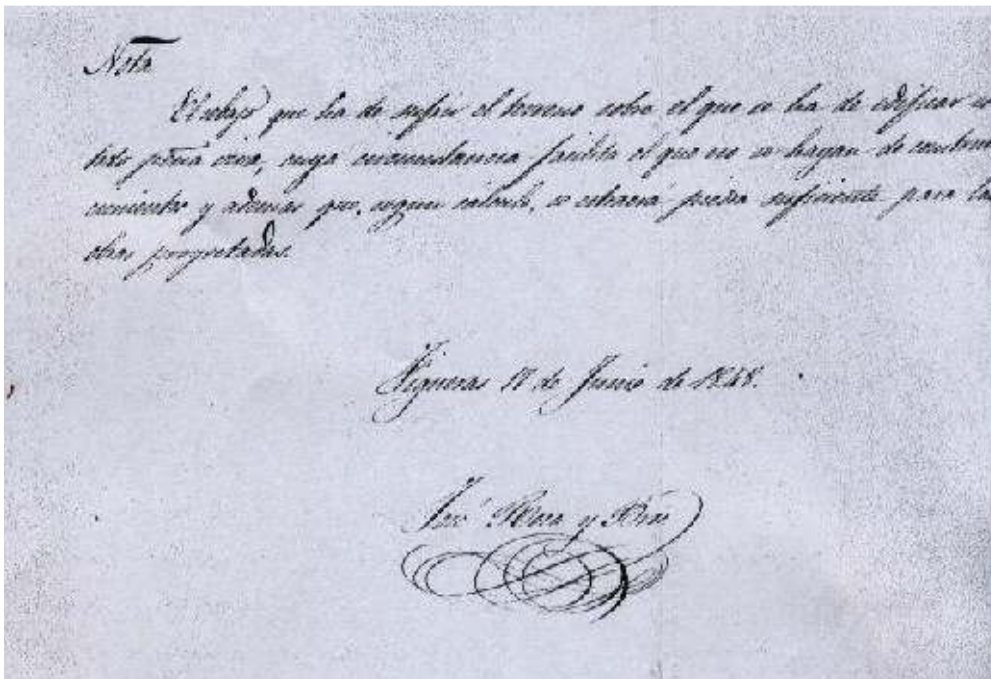 Nota
El rebaje que ha de sufrir el terreno sobre el que se ha de edificar es
todo peña viva, cuya circunstancia facilita el que no se hagan de
cimientos y ademas que, segun calculo, se extraerá piedra suficiente para las
obras proyectadas.
Figueras 17 de Junio de 1848.
José Roca y Bros